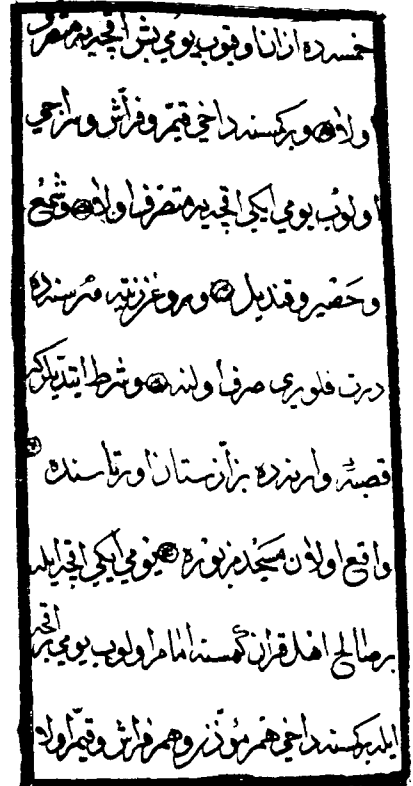 خمسه ده اذان اوقیوب یومی بش اقچه یه متصرف
اولا وبر کسنه داخی قیم وفراش وسراجی
اولوب یومی ایکی اقچه یه متصرف اولا وشمع
وحصیر وقندیل وروغن زیته هر سنه ده
درت فلوری صرف اولنه وشرط ایتدیلرکه
قصبۀ وارنه ده بزازستان اورتاسنده
واقع اولان مسجد مزبوره یومی ایکی اقچه ایله
بر صالح اهل قران کمسنه امام اولوب یومی بر اقچه
ایله بر کسنه داخی هم مؤذن وهم فراش وقیم اولا